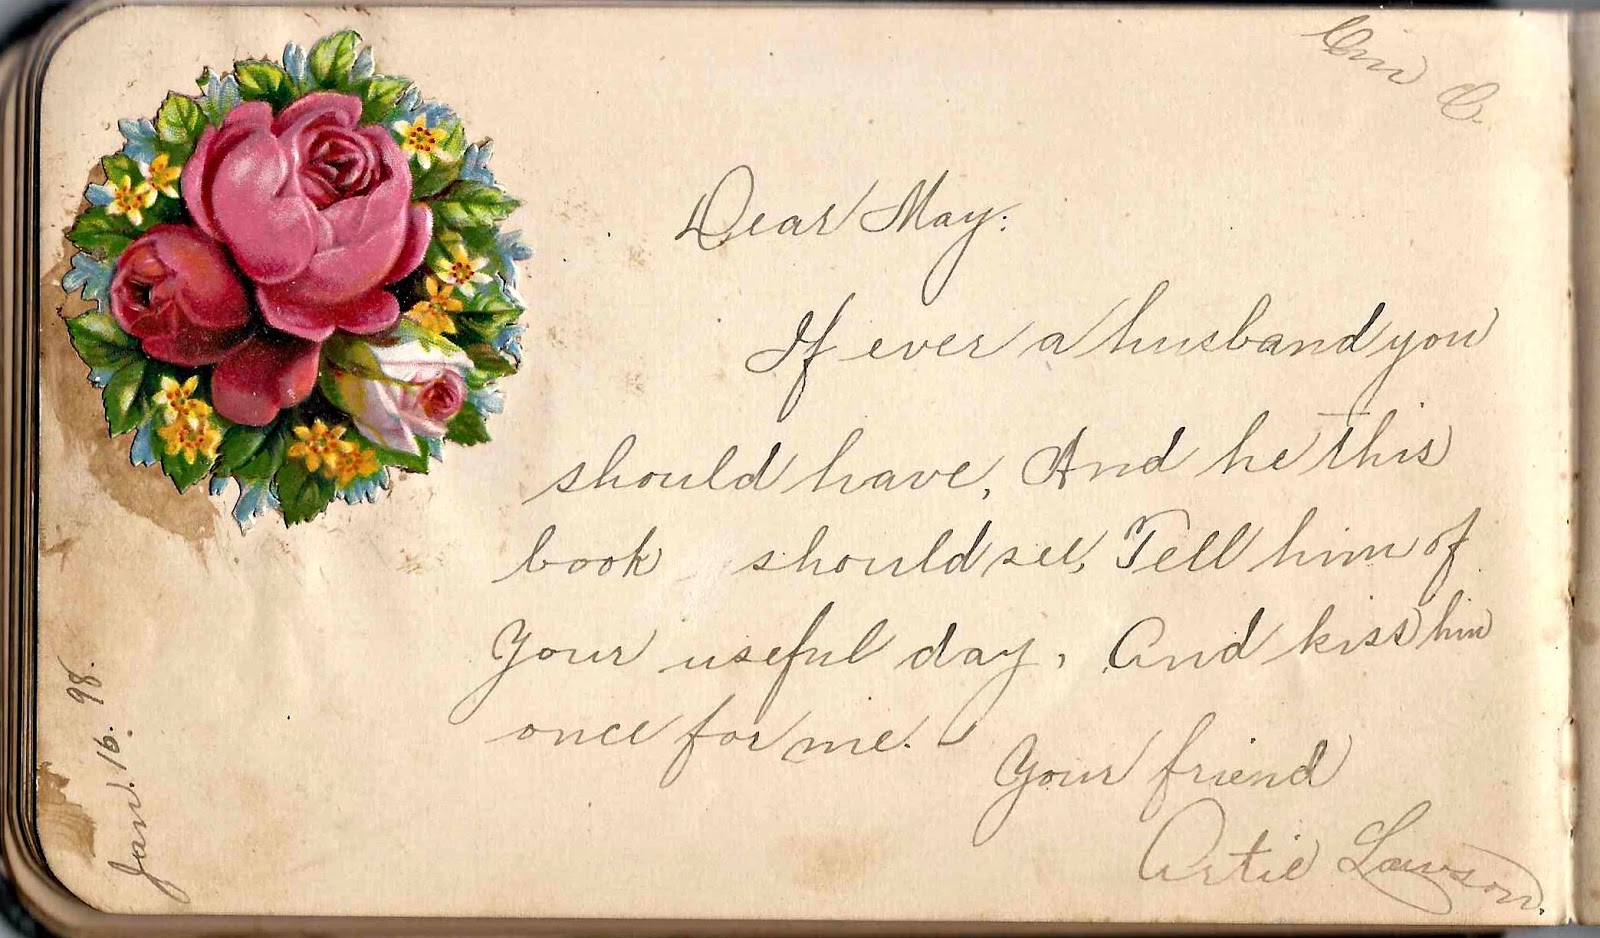 Cin O.
Dear May:
If ever a husband you
should have, And he this
book should see, Tell him of
Your useful day, And kiss him
once for me.
Your friend
Artie Lawson.
Jan. 16. 98.